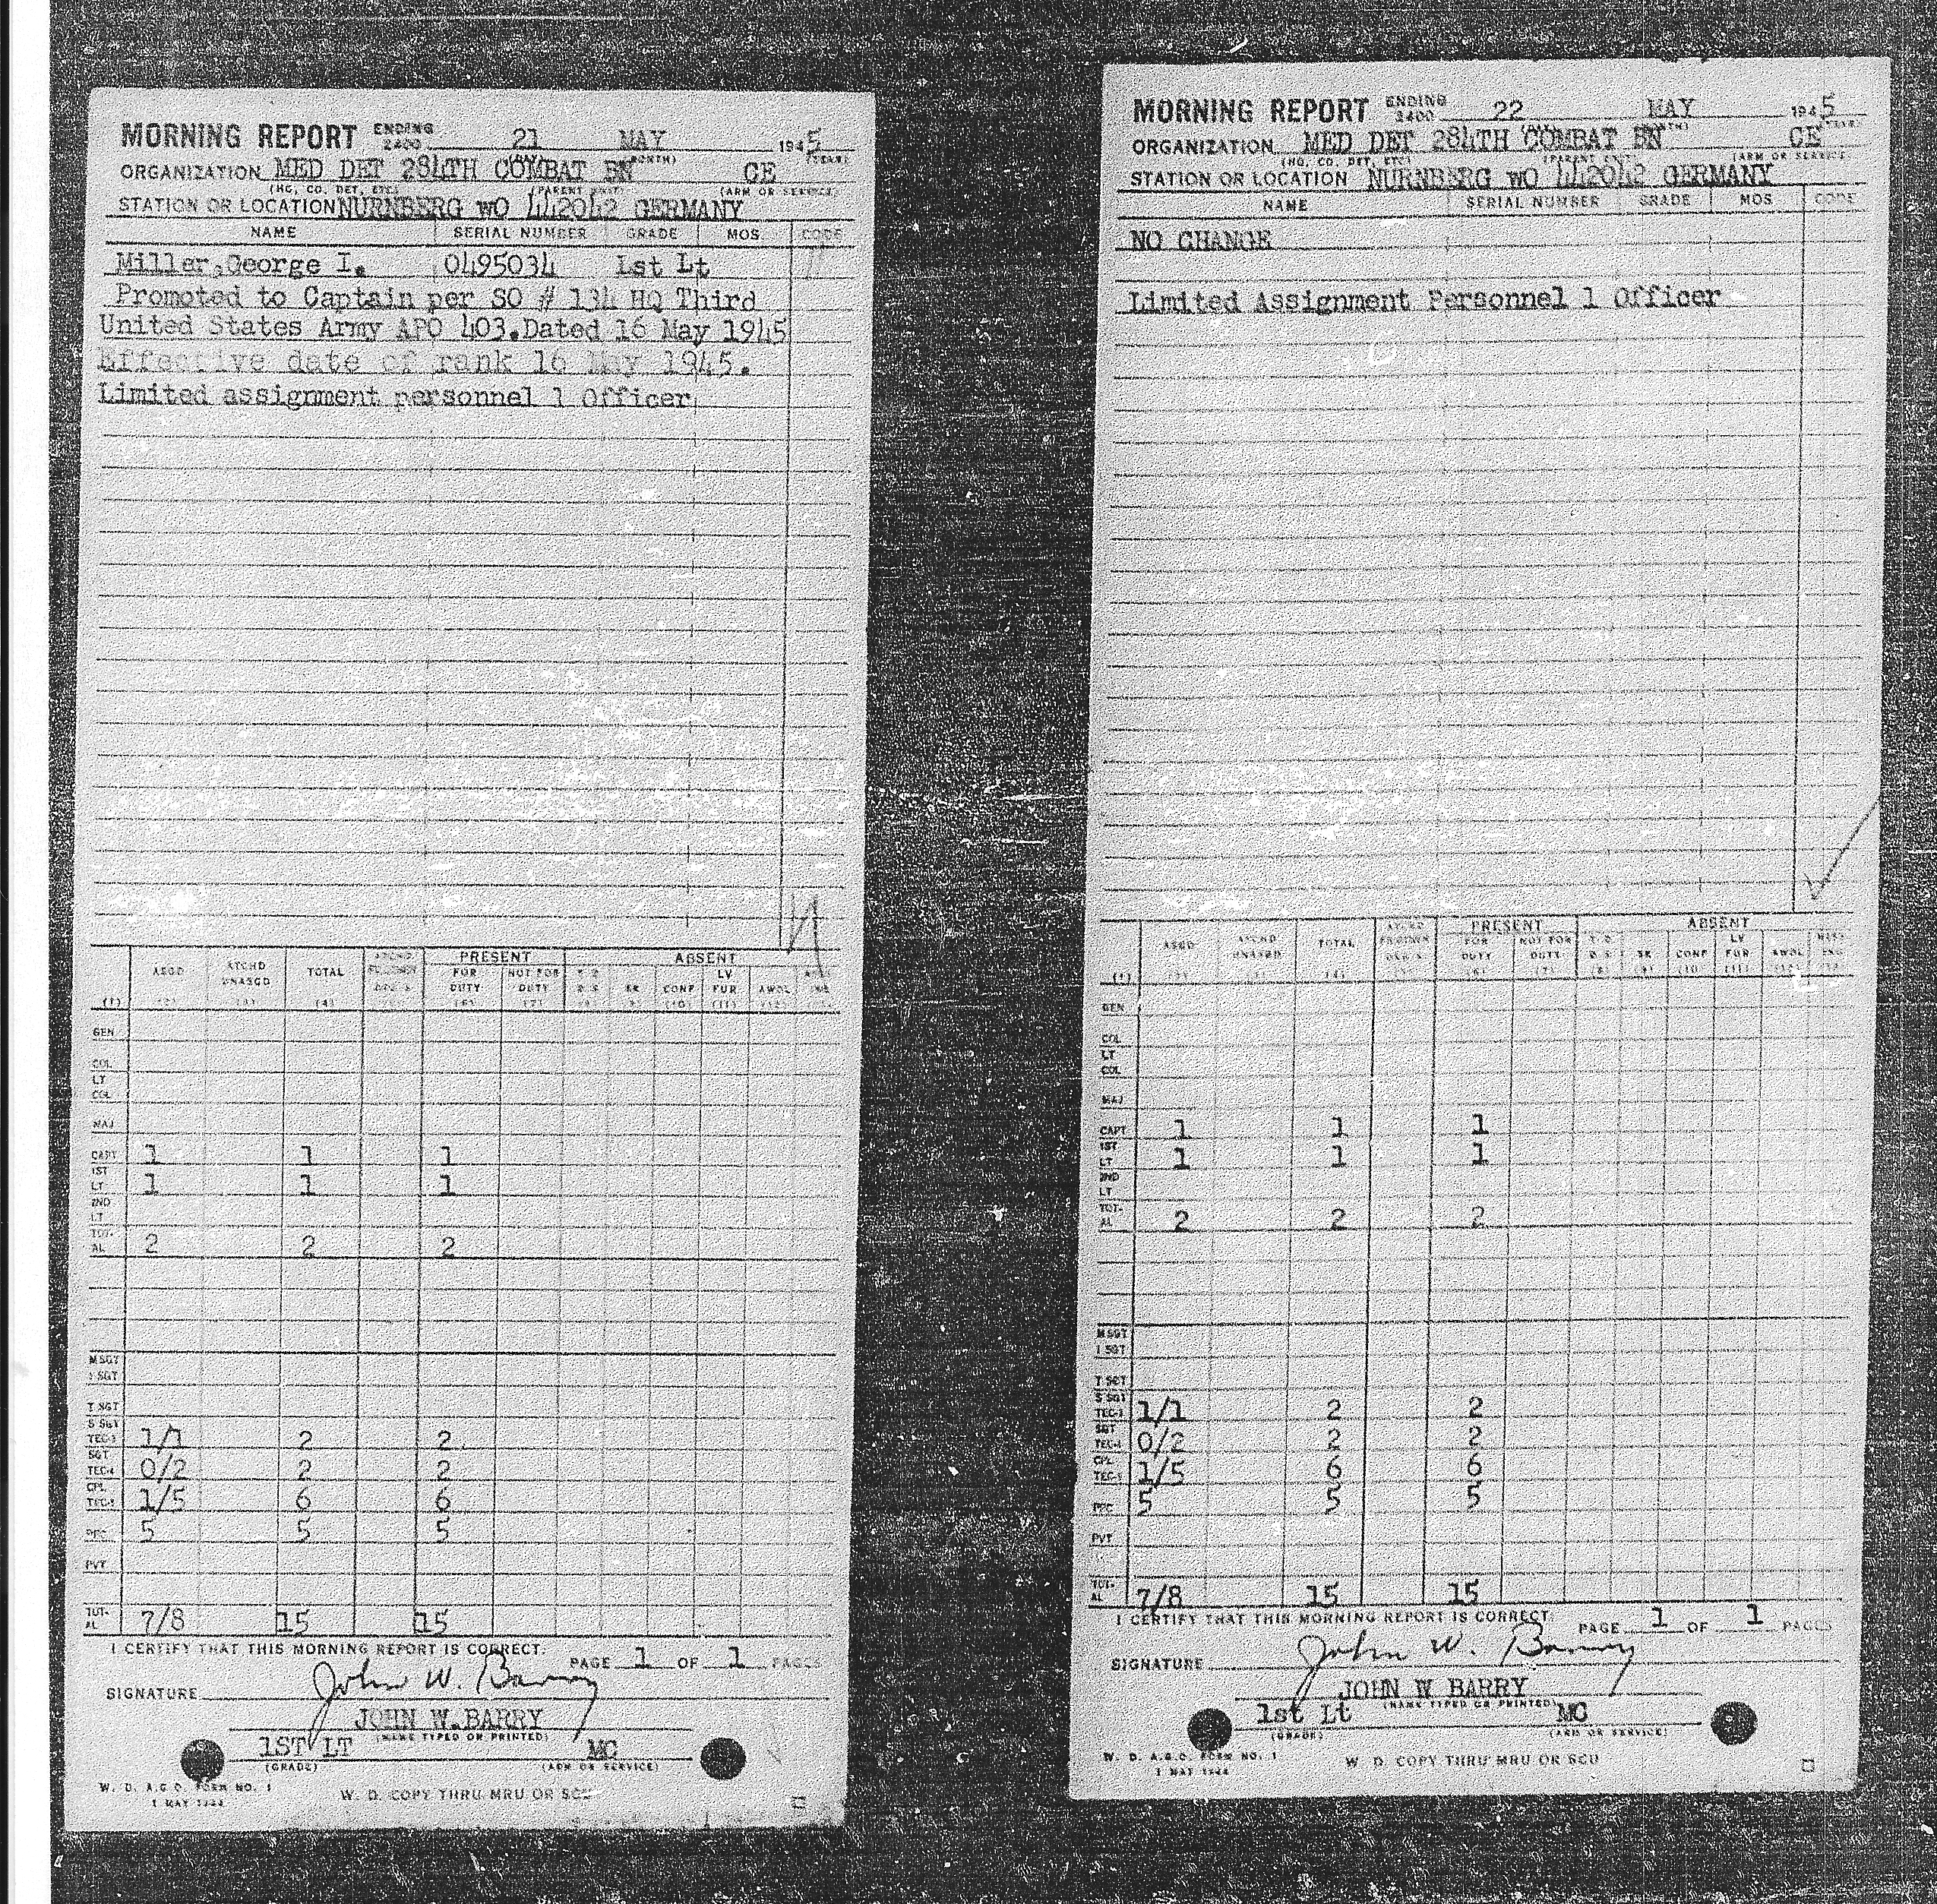 MORNING REPORT ENDING 2400 21 MAY 1945
ORGANIZATION MED DET 284TH COMBAT BN CE
(HQ, CO, DET, ETC) (PARENT UNIT) (ARM OR SERVICE)
STATION OR LOCATION NURNBERG WO 442042 GERMANY
NAME SERIAL NUMBER GRADE MOS CODE
Miller,George I. 0495034 1st Lt
Promoted to Captain per SO # 134 HQ Third
United States Army APO 403.Dated 16 May 1945
Effective date of rank 16 May 1945.
Limited assignment personnel 1 Officer
PRESENT ABSENT
(1) ASGD (2) ATCHD UNASGD (3) TOTAL (4) FOR DUTY (6) NOT FOR DUTY (7) SK CONF (10) LV FUR (11) AWOL (12)
GEN
COL
LT COL
MAJ
CAPT 1 1 1
1ST LT 1 1 1
2ND LT
TOTAL 2 2 2
M SGT
1 SGT
T SGT
S SGT
TEC-3 1/1 2 2
SGT
TEC-4 0/2 2 2
CPL
TEC-5 1/5 6 6
PFC 5 5 5
PVT
TOTAL 7/8 15 15
I CERTIFY THAT THIS MORNING REPORT IS CORRECT.
PAGE 1 OF 1 PAGES
SIGNATURE John W. Barry
JOHN W.BARRY
(NAME TYPED OR PRINTED)
1ST LT MC
(GRADE) (ARM OR SERVICE)
W. D. A.G.O. FORM NO. 1
1 MAY 1944
W. D. COPY THRU MRU OR SCU
MORNING REPORT ENDING 2400 22 MAY 1945
ORGANIZATION MED DET 284TH COMBAT BN CE
(HQ, CO, DET, ETC) (PARENT UNIT) (ARM OR SERVICE)
STATION OR LOCATION NURNBERG WO 442042 GERMANY
NAME SERIAL NUMBER GRADE MOS CODE
NO CHANGE
Limited Assignment Personnel 1 Officer
PRESENT ABSENT
(1) ASGD ATCHD UNASGD TOTAL (4) FOR DUTY (6) NOT FOR DUTY (7) SK CONF (10) LV FUR (11) AWOL
GEN
COL
LT COL
MAJ
CAPT 1 1 1
1ST LT 1 1 1
2ND LT
TOTAL 2 2 2
M SGT
1 SGT
T SGT
S SGT
TEC-3 1/1 2 2
SGT
TEC-4 0/2 2 2
CPL
TEC-5 1/5 6 6
PFC 5 5 5
PVT
TOTAL 7/8 15 15
I CERTIFY THAT THIS MORNING REPORT IS CORRECT.
PAGE 1 OF 1 PAGES
SIGNATURE John W. Barry
JOHN W BARRY
(NAME TYPED OR PRINTED)
1st Lt MC
(GRADE) (ARM OR SERVICE)
W. D. A.G.O. FORM NO. 1
1 MAY 1944
W. D. COPY THRU MRU OR SCU